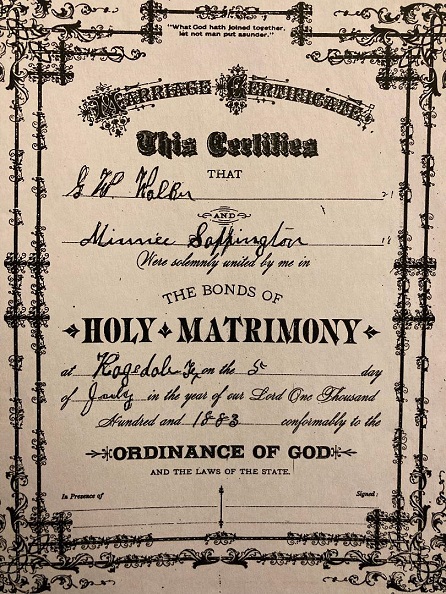 "What God hath joined together,
let not man put asunder."
MARRIAGE CERTIFICATE
This Certifies
THAT
G W Walker 21
AND
Minnie Sappington 18
Were solemnly united by me in
THE BONDS OF
HOLY MATRIMONY
at on the 5 day
of July in the year of our Lord One Thousand
Hundred and 1883 conformably to the
ORDINANCE OF GOD
AND THE LAWS OF THE STATE.
In Presence of Signed: